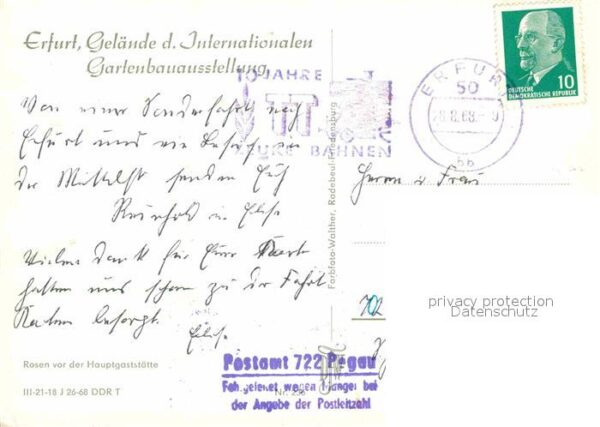 Erfurt, Gelände d. Internationalen
Gartenbauausstellung
10 JAHRE
BAHNEN
ERFURT
50
DEUTSCHE
DEMOKRATISCHE REPUBLIK
10
Von einer Sonderfahrt nach
Erfurt und
senden Euch
Reinhold u. Else
Vielen Dank für Eure Karte
hatten uns schon zu der Fahrt
Karten besorgt.
Herrn u Frau
Farbfoto-Walther, Radebeul-Friedensburg
privacy protection
Datenschutz
Rosen vor der Hauptgaststätte
III-21-18 J 26-68 DDR T
Postamt 722 Pegau
Fehlgeleitet wegen Mangel bei
der Angabe der Postleitzahl